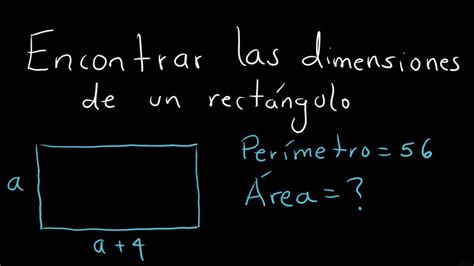 Encontrar las dimensiones
de un rectángulo
Perímetro = 56
a
Área = ?
a + 4